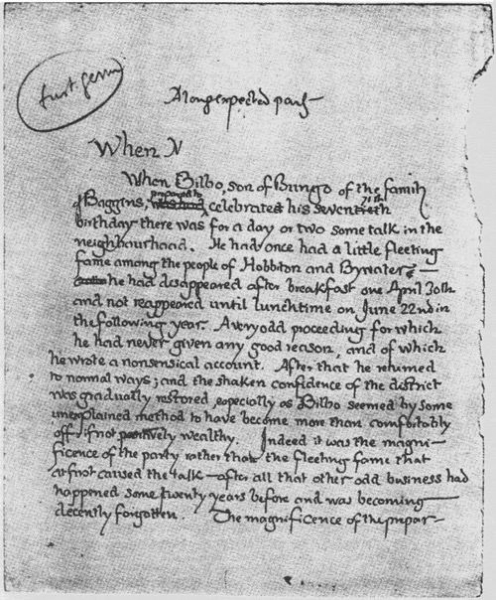 first germ
A long expected party
When N
When Bilbo, son of Bungo of the family
of Baggins, prepared to celebrate his seventieth
birthday there was for a day or two some talk in the
neighbourhood. He had once had a little fleeting
fame among the people of Hobbiton and Bywater —
he had disappeared after breakfast one April 30th
and not reappeared until lunchtime on June 22nd in
the following year. A very odd proceeding for which
he had never given any good reason, and of which
he wrote a nonsensical account. After that he returned
to normal ways; and the shaken confidence of the district
was gradually restored especially as Bilbo seemed by some
unexplained method to have become more than comfortably
off, if not positively wealthy. Indeed it was the magni-
ficence of the party rather than the fleeting fame that
at first caused the talk — after all that other odd business had
happened some twenty years before and was becoming
decently forgotten. The magnificence of the prepar-